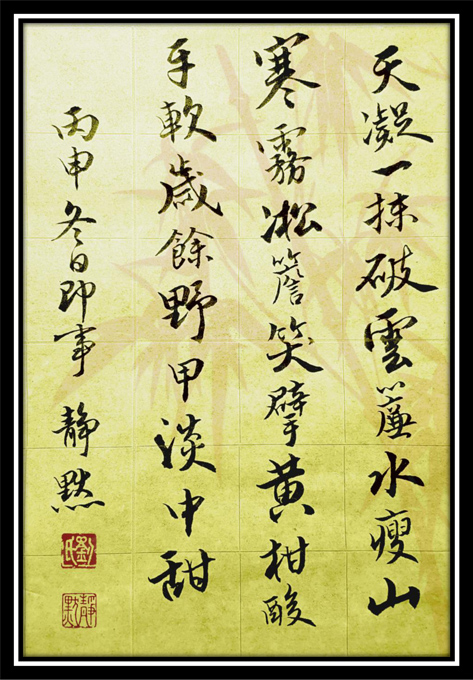 天凝一抹破雲簾水瘦山
寒霧凇簷笑擘黃柑酸
手軟歲餘野甲淡中甜
丙申冬日即事 静默
劉氏
静默